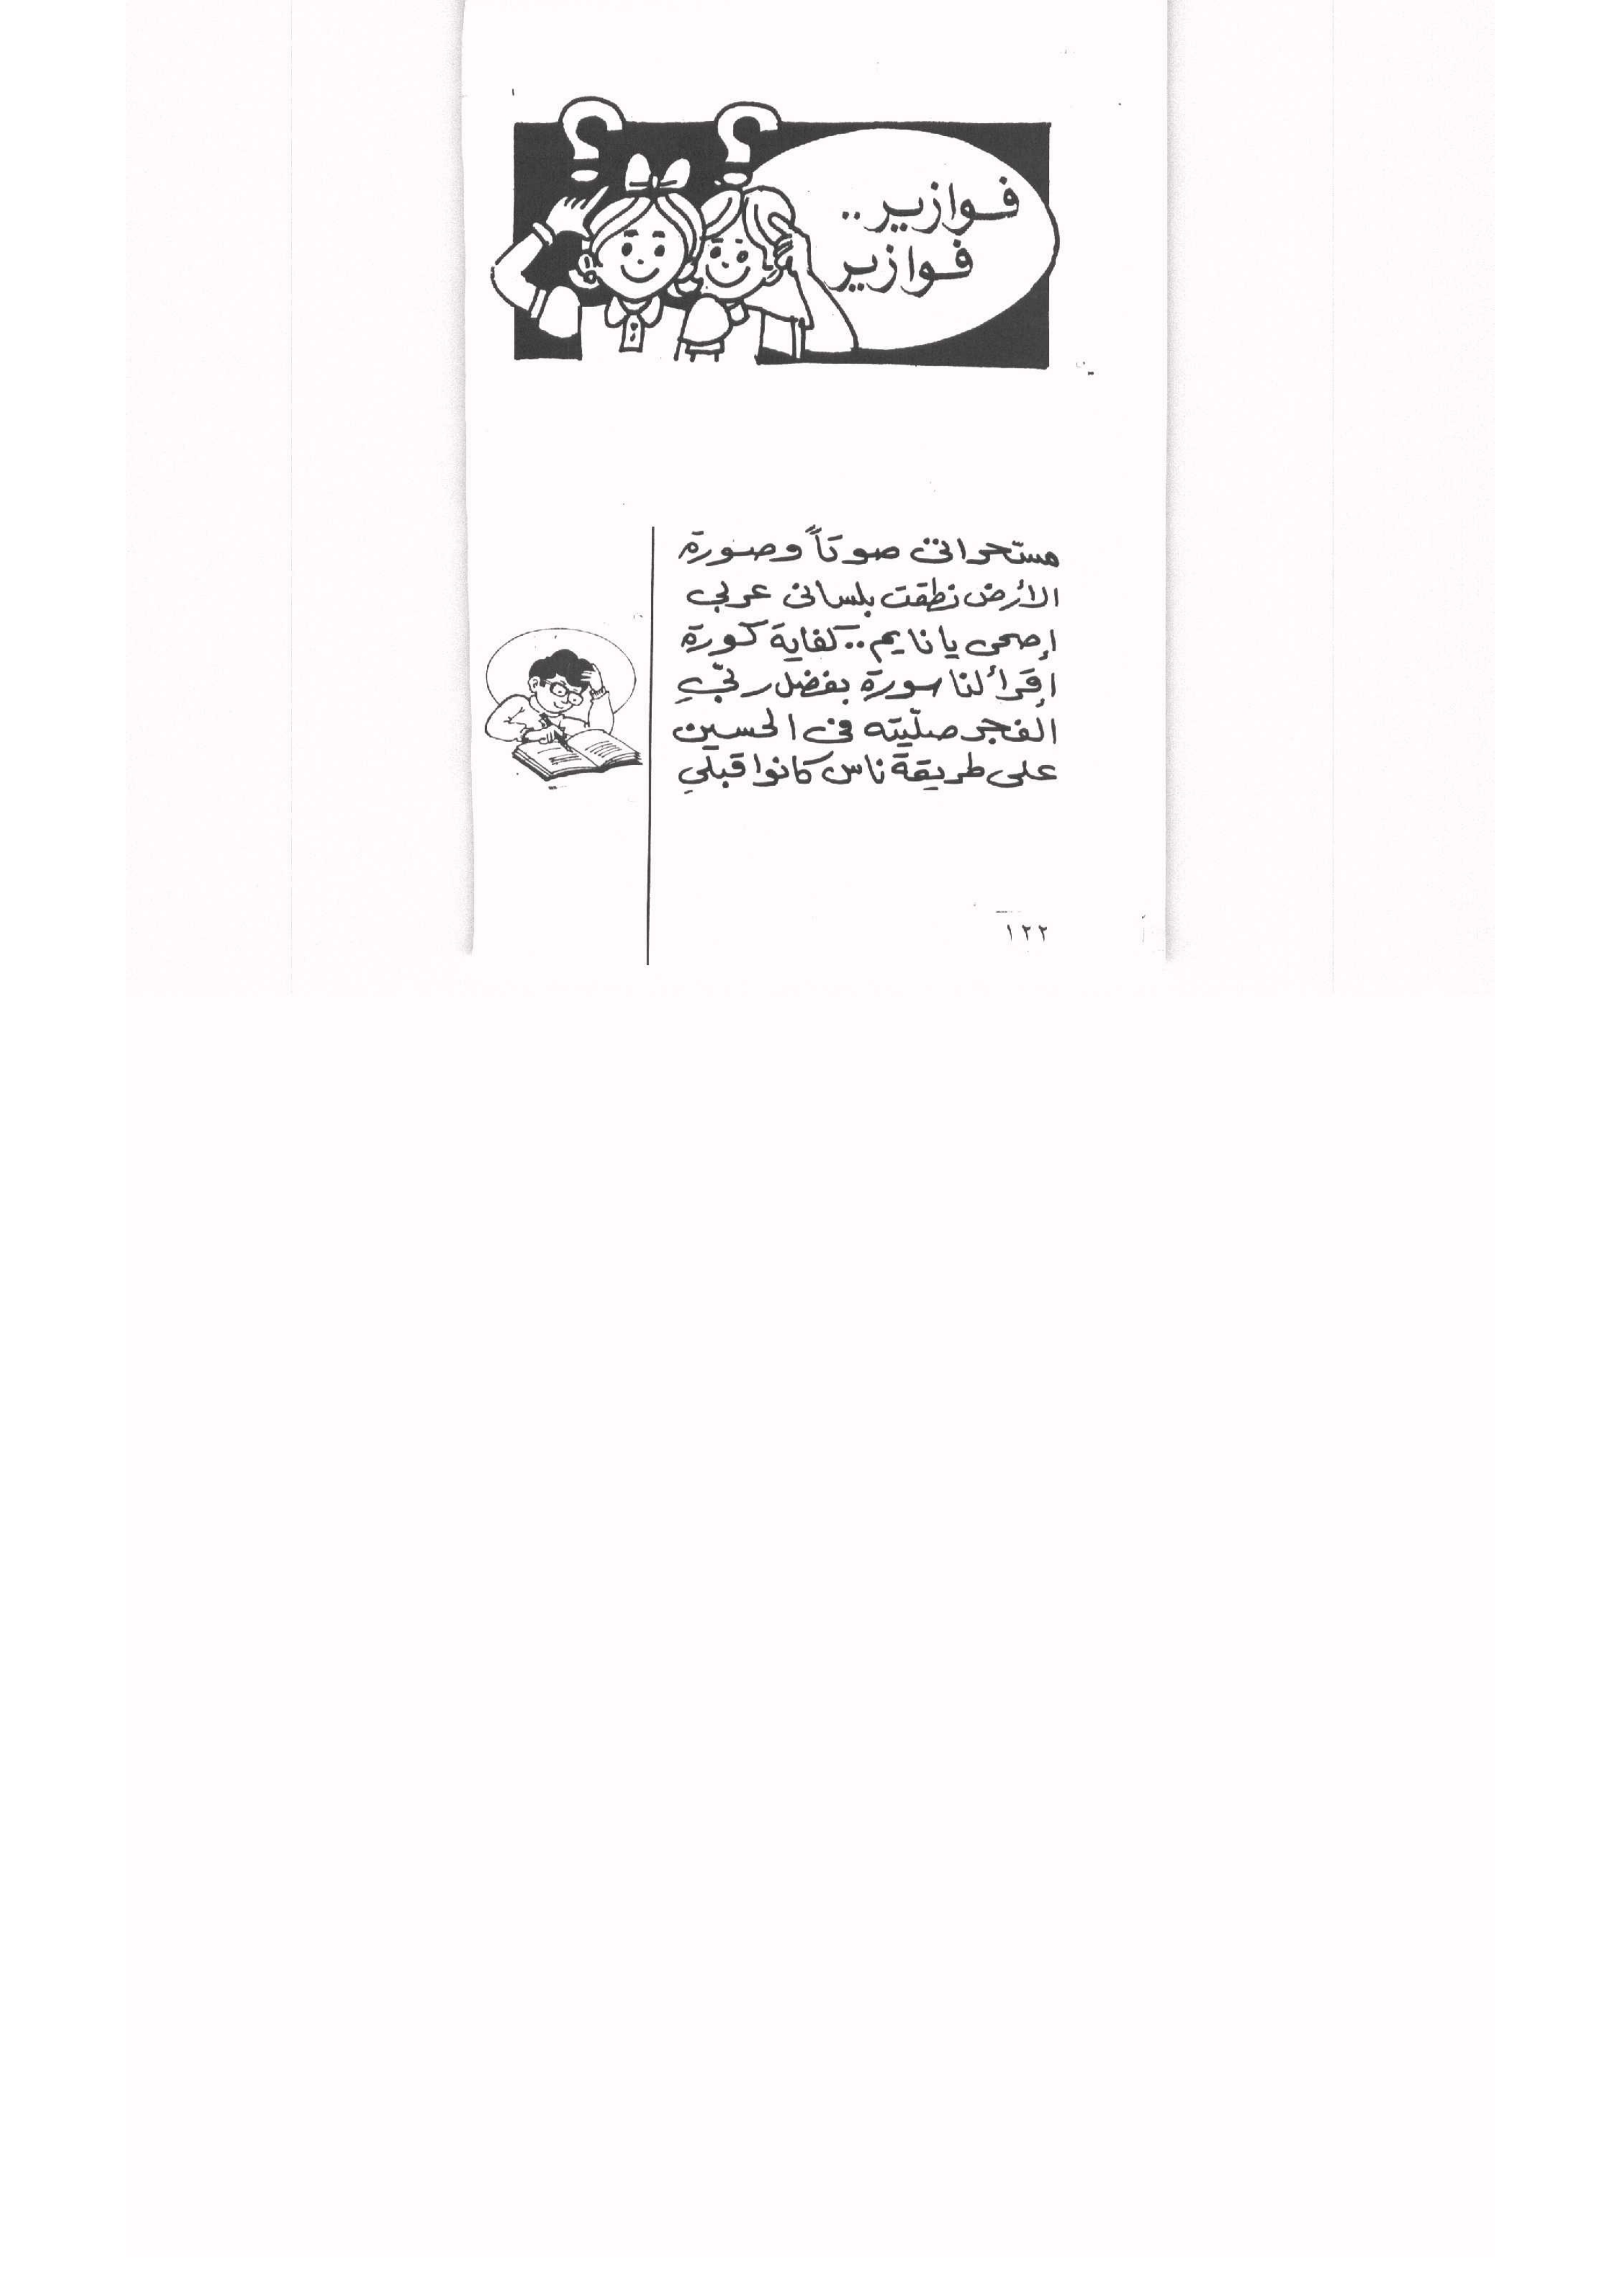 فوازير..
فوازير
مسّحراتى صوتاً وصورة
الأرض نطقت بلسانى عربي
إصحى يا نايم.. كفاية كورة
إقرأ لنا سورة بفضل ربّي
الفجر صلّيته فى الحسين
على طريقة ناس كانوا قبلي
١٢٢